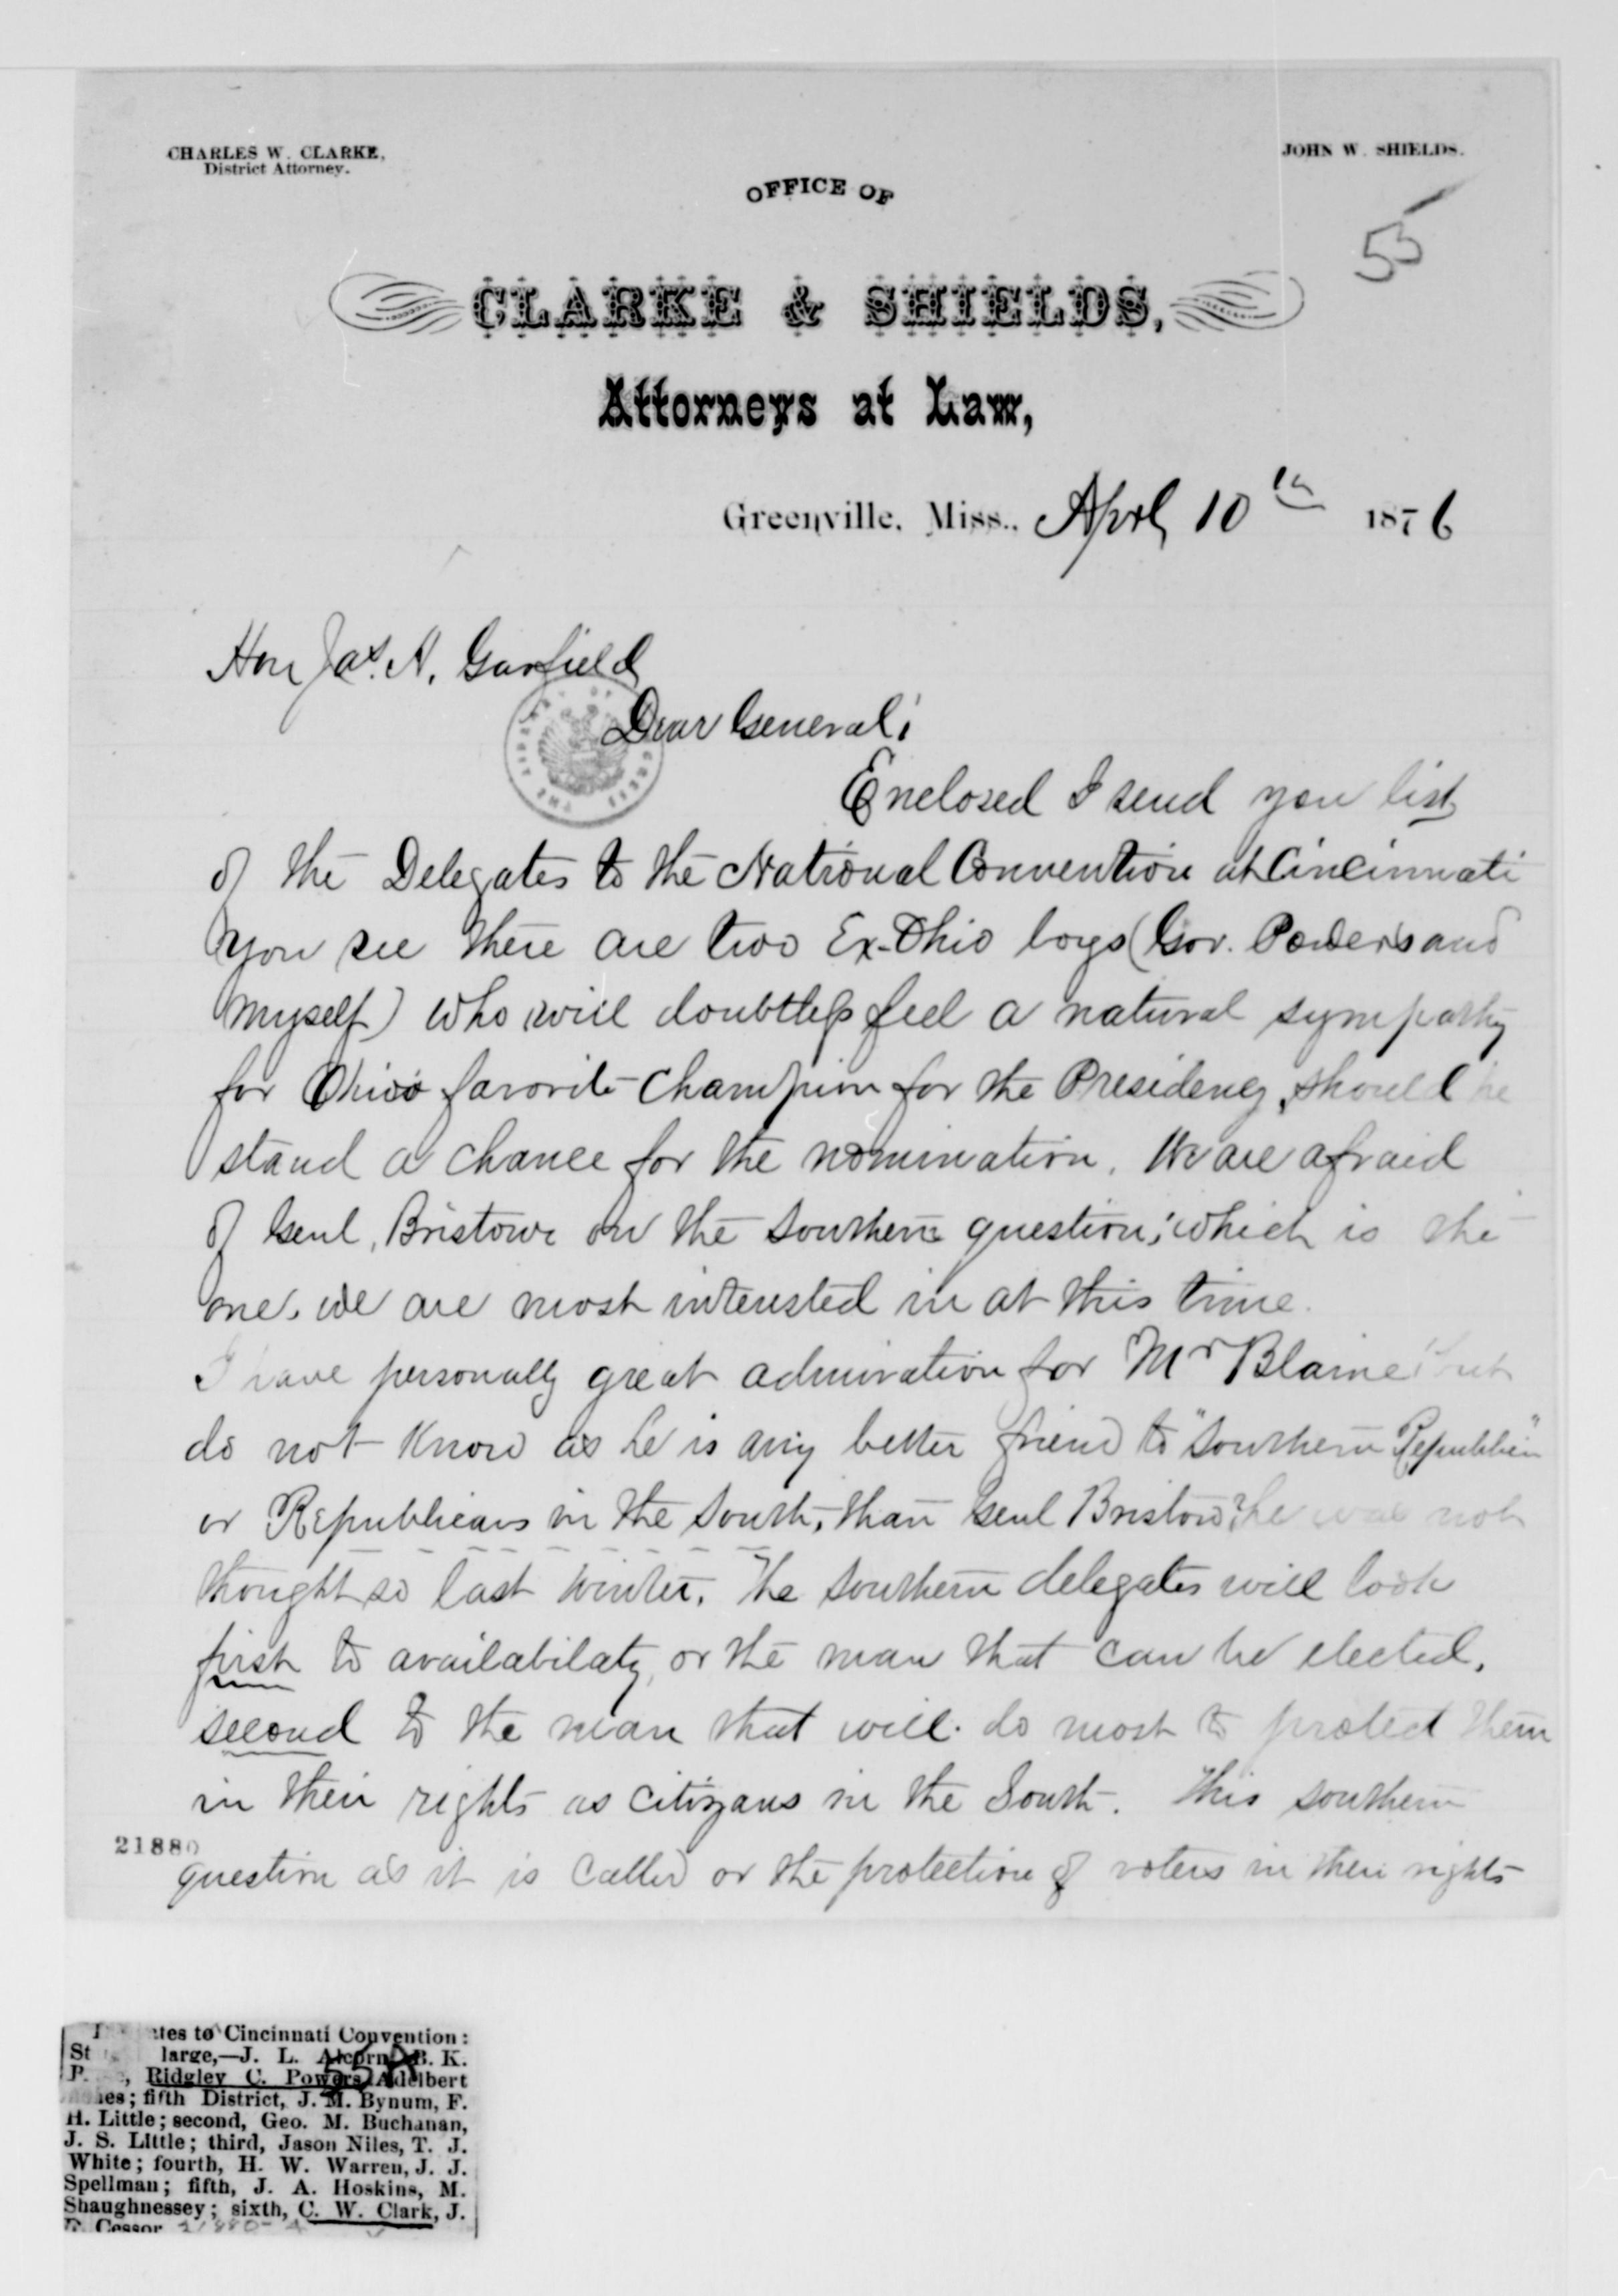 CHARLES W. CLARKE,
District Attorney.
JOHN W. SHIELDS.
55
OFFICE OF
CLARKE & SHIELDS,
Attorneys at Law,
Greenville, Miss., April 10th 1876
Hon Jas. A. Garfield
Dear General;
Enclosed I send you list
of the Delegates to the National Convention at Cincinnati
You see there are two Ex-Ohio boys (Gov. Powers and
myself) who will doubtless feel a natural sympathy
for Ohios favorite champion for the Presidency, should he
stand a chance for the nomination. We are afraid
of Genl. Bristow on the southern question; which is the
one, we are most interested in at this time.
I have personally great admiration for Mr Blaine but
do not know as he is any better friend to "Southern Republican"
or Republicans in the South, than Genl Bristow, he was not
thought so last winter. The southern delegates will look
first to availabilaty, or the man that can be elected.
second to the man that will do most to protect them
in their rights as citizans in the South. This southern
21880
question as it is called or the protection of voters in their rights
tes to Cincinnati Convention:
St large,—J. L. Alcorn, B. K.
55A
P. , Ridgley C. Powers, Adelbert
es; fifth District, J. M. Bynum, F.
H. Little; second, Geo. M. Buchanan,
J. S. Little; third, Jason Niles, T. J.
White; fourth, H. W. Warren, J. J.
Spellman; fifth, J. A. Hoskins, M.
Shaughnessey; sixth, C. W. Clark, J.
Cessor 21880-A